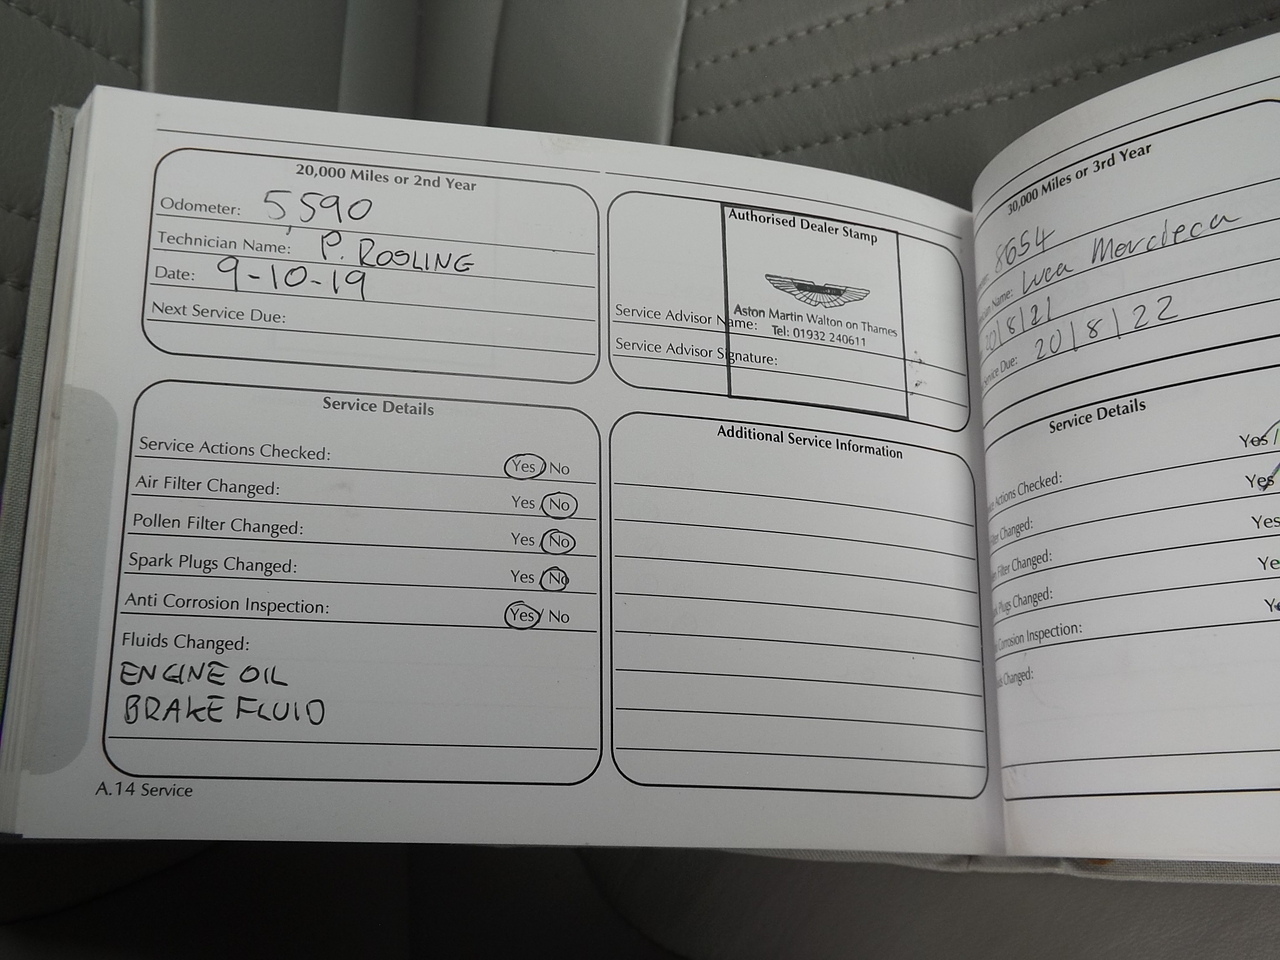 20,000 Miles or 2nd Year
Odometer: 5,590
Technician Name: P. ROSLING
Date: 9-10-19
Next Service Due:
Authorised Dealer Stamp
Aston Martin Walton on Thames
Service Advisor Name:
Tel: 01932 240611
Service Advisor Signature:
Service Details
Service Actions Checked: Yes / No
Air Filter Changed: Yes / No
Pollen Filter Changed: Yes / No
Spark Plugs Changed: Yes / No
Anti Corrosion Inspection: Yes / No
Fluids Changed:
ENGINE OIL
BRAKE FLUID
Additional Service Information
A.14 Service
30,000 Miles or 3rd Year
8654
Name: Luca
20/8/21
Service Due: 20/8/22
Service Details
Actions Checked: Yes /
Changed: Yes
Filter Changed: Yes
Plugs Changed: Ye
Corrosion Inspection: Ye
Changed: